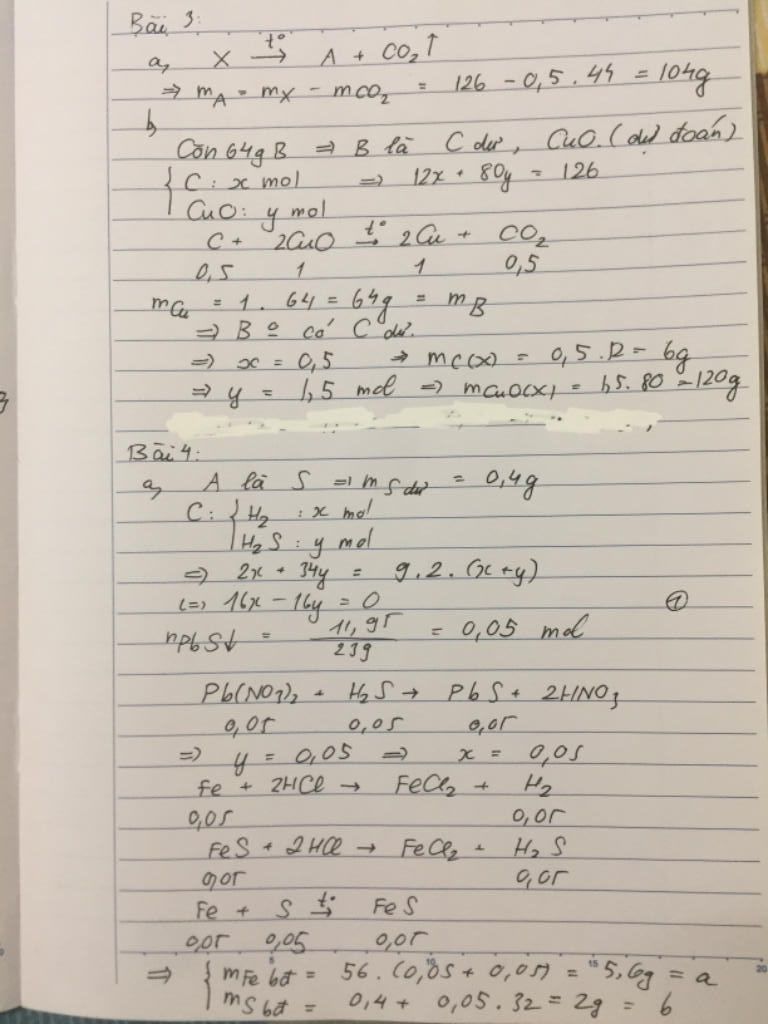 Bài 3:
a, X t°→ A + CO2↑
⇒ mA = mX − mCO2 = 126 − 0,5 . 44 = 104g
b,
Còn 64g B ⇒ B là C dư, CuO. (dự đoán)
{ C : x mol ⇒ 12x + 80y = 126
CuO : y mol
C + 2CuO t°→ 2Cu + CO2
0,5 1 1 0,5
mCu = 1 . 64 = 64g = mB
⇒ B º có C dư.
⇒ x = 0,5 → mC(X) = 0,5 . 12 = 6g
⇒ y = 1,5 mol ⇒ mCuO(X) = 1,5 . 80 = 120g
Bài 4:
a, A là S ⇒ mS dư = 0,4g
C : { H2 : x mol
H2S : y mol
⇒ 2x + 34y = 9 . 2 . (x + y)
⇔ 16x − 16y = 0 ①
nPbS↓ = 11,95 / 239 = 0,05 mol
Pb(NO3)2 + H2S → PbS + 2HNO3
0,05 0,05 0,05
⇒ y = 0,05 ⇒ x = 0,05
Fe + 2HCl → FeCl2 + H2
0,05 0,05
FeS + 2HCl → FeCl2 + H2S
0,05 0,05
Fe + S t°→ FeS
0,05 0,05 0,05
5 10 15 20
⇒ { mFe bđ = 56 . (0,05 + 0,05) = 5,6g = a
mS bđ = 0,4 + 0,05 . 32 = 2g = b